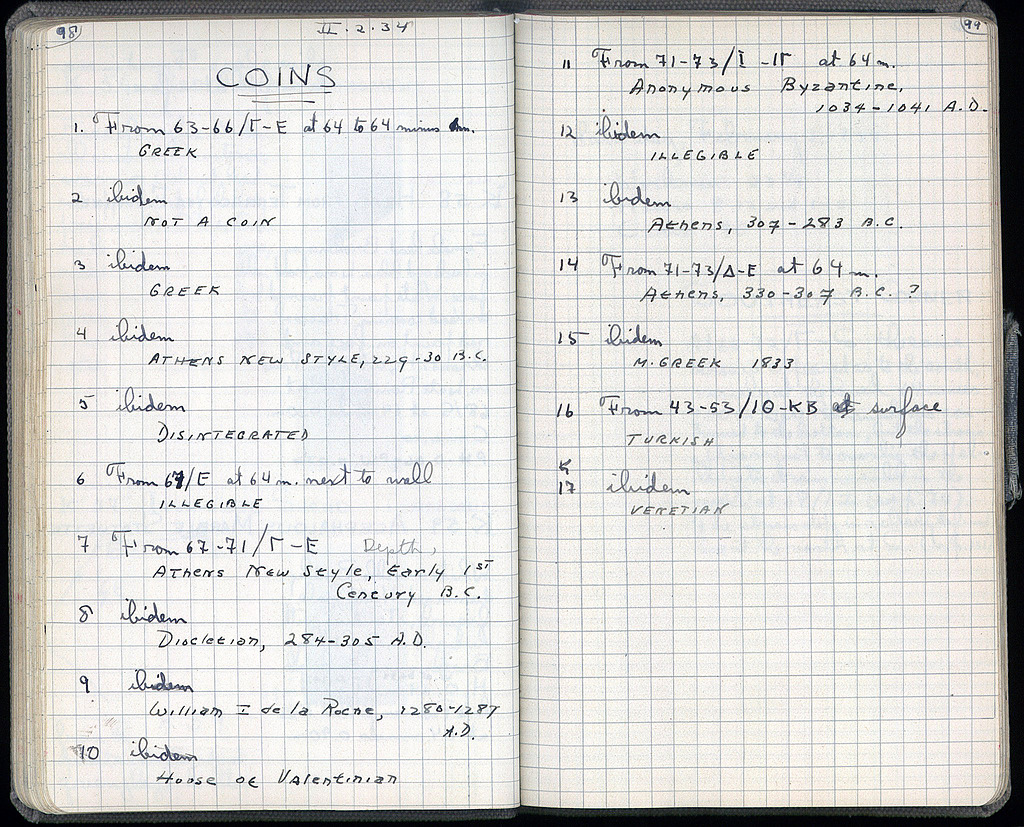 98
II.2.34
COINS
1. From 63-66/Γ-E at 64 to 64 minus m.
GREEK
2 ibidem
NOT A COIN
3 ibidem
GREEK
4 ibidem
ATHENS NEW STYLE, 229-30 B.C.
5 ibidem
DISINTEGRATED
6 From 67/E at 64 m. next to wall
ILLEGIBLE
7 From 67-71/Γ-E Depth,
Athens New Style, Early 1ST
Century B.C.
8 ibidem
Diocletian, 284-305 A.D.
9 ibidem
William I de la Roche, 1280-1287
A.D.
10 ibidem
House of Valentinian
99
11 From 71-73/I-IΓ at 64 m.
Anonymous Byzantine,
1034-1041 A.D.
12 ibidem
ILLEGIBLE
13 ibidem
Athens, 307-283 B.C.
14 From 71-73/Δ-E at 64 m.
Athens, 330-307 B.C. ?
15 ibidem
M. GREEK 1833
16 From 43-53/ΙΘ-KB at surface
TURKISH
17 ibidem
VENETIAN